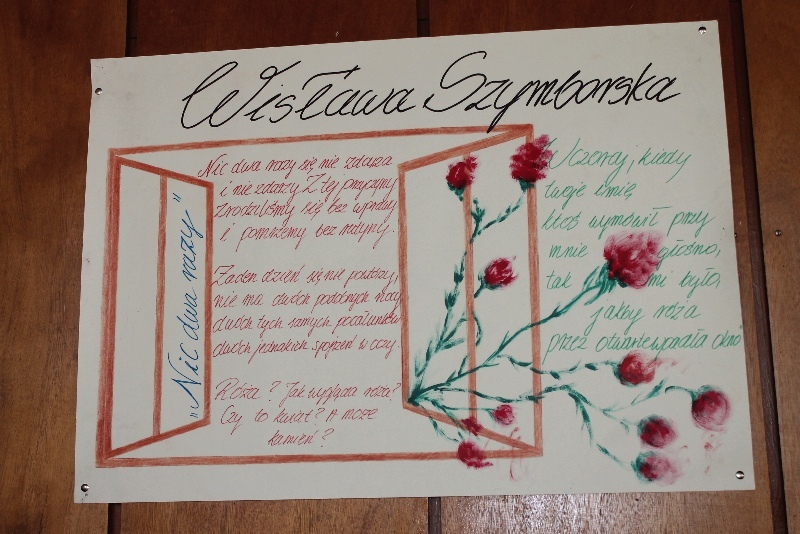 Wisława Szymborska
„Nic dwa razy"
Nic dwa razy się nie zdarza
i nie zdarzy. Z tej przyczyny
zrodziliśmy się bez wprawy
i pomrzemy bez rutyny.
Żaden dzień się nie powtórzy,
nie ma dwóch podobnych nocy,
dwóch tych samych pocałunków
dwóch jednakich spojrzeń w oczy.
Róża? Jak wygląda róża?
Czy to kwiat? A może
kamień?
Wczoraj, kiedy
twoje imię
ktoś wymówił przy
mnie głośno,
tak mi było,
jakby róża
przez otwarte wpadła okno